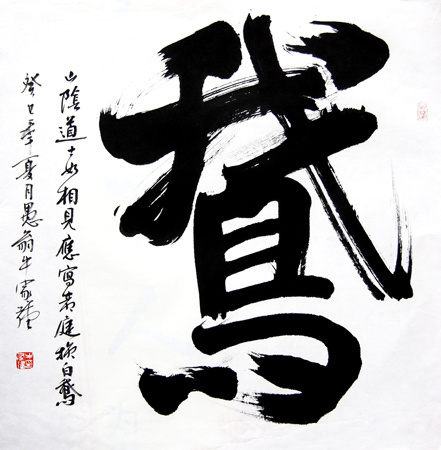 鵞
山陰道士如相見應寫黃庭換白鵞
癸巳年夏月愚翁牛家強